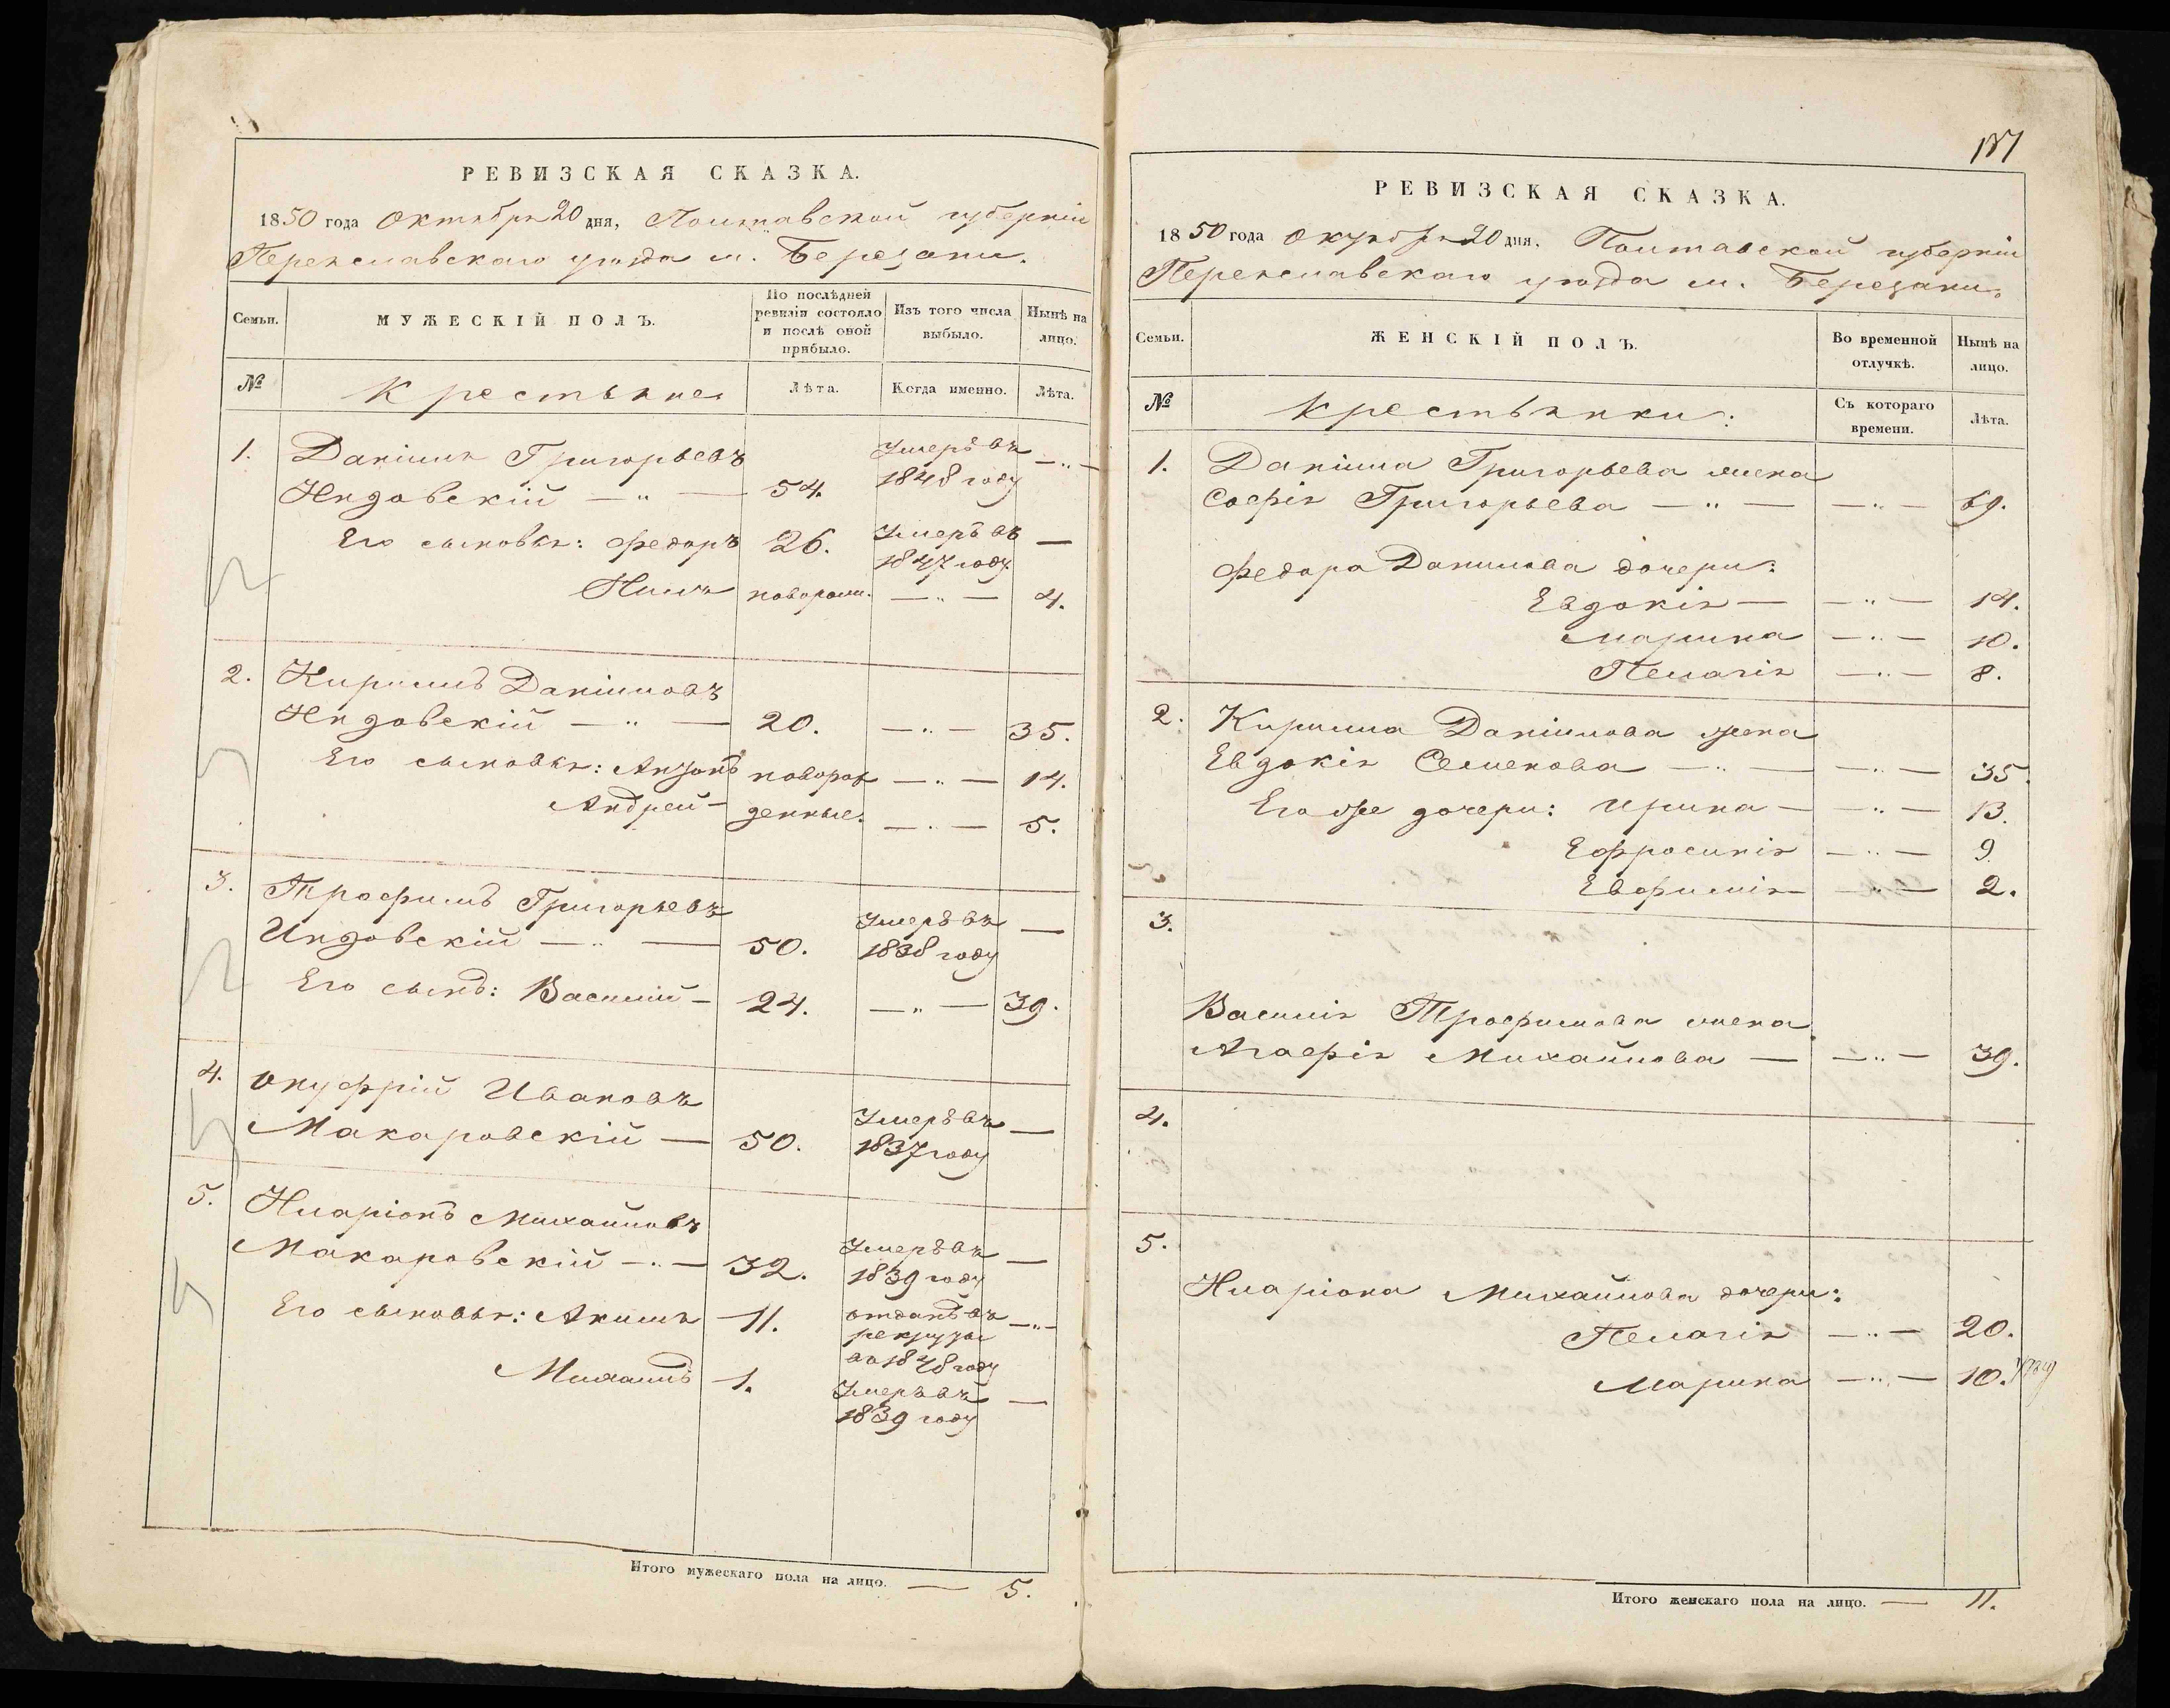 РЕВИЗСКАЯ СКАЗКА.
1850 года Октября 20 дня, Полтавской губерніи
Переяславскаго уѣзда м. Березани.
Семьи.
МУЖЕСКІЙ ПОЛЪ.
По послѣдней ревизіи состояло и послѣ оной прибыло.
Изъ того числа выбыло.
Нынѣ на лицо.
№
Крестьяне
Лѣта.
Когда именно.
Лѣта.
1. Даніилъ Григорьевъ Умеръ въ — „ —
— „ — 54. 1848 году
Его сыновья: Федоръ 26. Умеръ въ —
1847 году.
новорожд. — „ — 4.
2. Кирилъ Даніиловъ
— „ — 20. — „ — 35.
Его сыновья: Антонъ новорож — „ — 14.
Андрей — денные. — „ — 5.
3. Трофимъ Григорьевъ Умеръ въ —
— „ — 50. 1838 году
Его сынъ: Василій — 24. — „ — 39.
4. Онуфрій Ивановъ Умеръ въ —
Макаровскій — 50. 1837 году
5. Иларіонъ Михайловъ Умеръ въ —
Макаровскій — „ — 32. 1839 году
Его сыновья: Акимъ — 11. отданъ въ — „ —
рекруты
въ 1848 году
Михаилъ — 1. Умеръ въ —
1839 году
Итого мужескаго пола на лицо. — 5.
РЕВИЗСКАЯ СКАЗКА.
1850 года Октября 20 дня, Полтавской губерніи
Переяславскаго уѣзда м. Березани.
Семьи.
ЖЕНСКІЙ ПОЛЪ.
Во временной отлучкѣ.
Нынѣ на лицо.
№
Крестьянки:
Съ котораго времени.
Лѣта.
1. Даніила Григорьева жена
Софія Григорьева — „ — — „ — 69.
Федора Данилова дочери:
Евдокія — — „ — 14.
Марина — „ — 10.
Пелагія — „ — 8.
2. Кирила Даніилова жена
Евдокія Семенова — „ — — „ — 35.
Его же дочери: Ирина — — „ — 13.
Ефросинія — „ — 9.
Евфимія — „ — 2.
3.
Василія Трофимова жена
Агафія Михайлова — — „ — 39.
4.
5.
Иларіона Михайлова дочери:
Пелагія — „ — 20.
Марина — „ — 10.
Итого женскаго пола на лицо. — 11.